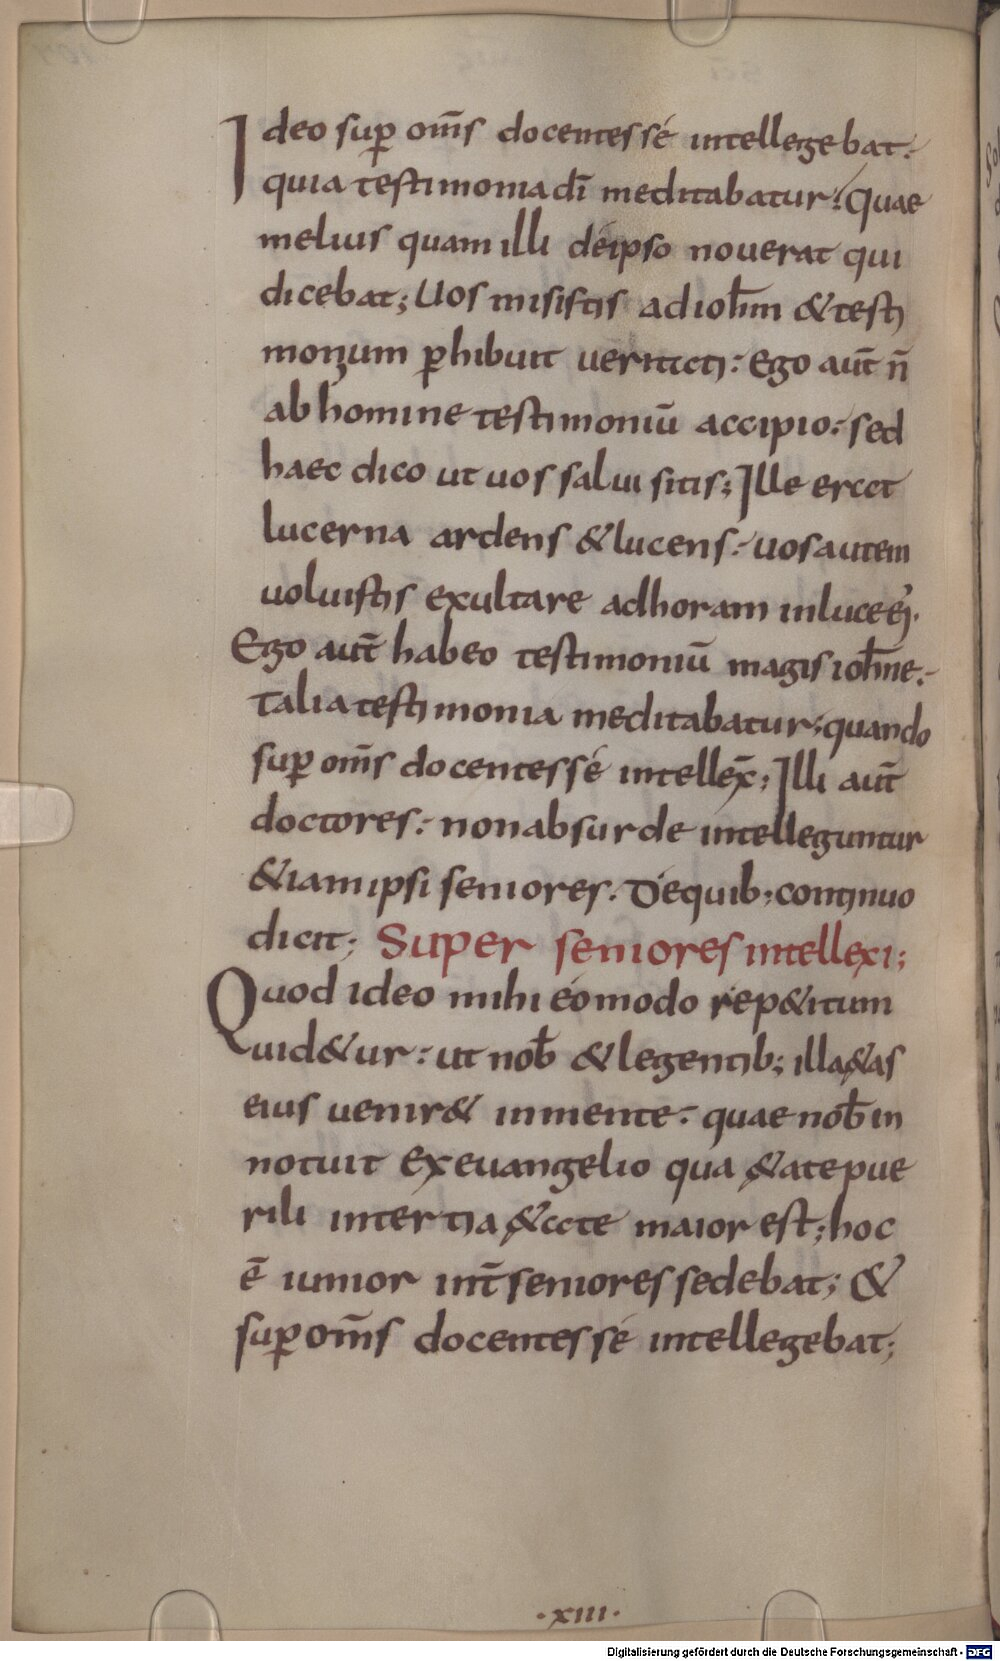 Ideo sup̄ om̄s docentes se intellegebat:
quia testimonia dī meditabatur: Quae
melius quam illi de ipso nouerat qui
dicebat; Uos misistis ad ioh̄m & testi
monium p̄hibuit ueritati: Ego aut̄ n̄
ab homine testimoniū accipio: sed
haec dico ut uos salui sitis; Ille erat
lucerna ardens & lucens: uos autem
uoluistis exultare ad horam in luce ei᾿.
Ego aut̄ habeo testimoniū magis ioh̄ne:
Talia testimonia meditabatur; quando
sup̄ om̄s docentes se intellex̄; Illi aut̄
doctores: non absurde intelleguntur
&iam ipsi seniores. De quib; continuo
dicit; Super seniores intellexi;
Quod ideo mihi eo modo rep&itum
uid&ur: ut nob̄ & legentib; illa &as
eius uenir& in mente: quae nob̄ in
notuit ex euangelio qua &ate pue
rili inter tia &ate maior est; hoc
ē iunior int̄ seniores sedebat; &
sup̄ om̄s docentes se intellegebat;
·xiii·
Digitalisierung gefördert durch die Deutsche Forschungsgemeinschaft - DFG